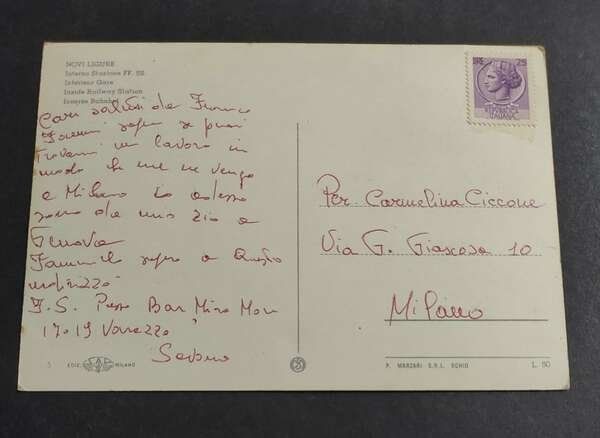 NOVI LIGURE
Interno Stazione FF. SS.
Intérieur Gare
Inside Railway Station
Inneres Bahnhof
Cari saluti da
Fammi sapere se puoi
trovarmi un lavoro in
modo che me ne vengo
a Milano Io adesso
sono da mio zio a
Genova
Fammelo sapere a questo
indirizzo
F.S. Presso Bar Mira Mare
17019 Varazze
L. 25
REPUBBLICA
ITALIANA
Per. Carmelina Ciccone
Via G. Giacosa 10
Milano
EDIZ. SAF MILANO
P. MARZARI S.R.L. SCHIO
L. 50